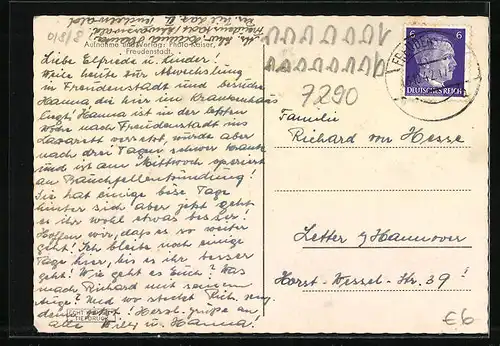 018/8
Aufnahme und Verlag: Photo-Kaiser,
Freudenstadt.
Liebe Elfriede u. Kinder!
Weile heute zur Abwechslung
in Freudenstadt und besuche
Hanna die hier im Krankenhaus
liegt. Hanna ist in der letzten
Woche nach Freudenstadt ins
Lazarett versetzt, wurde aber
nach drei Tagen schwer krank
und ist am Mittwoch operiert
an Bauchfellentzündung!
Sie hat einige böse Tage
hinter sich aber jetzt geht
es ihr wohl etwas besser!
Hoffen wir, daß es so weiter
geht! Ich bleibe noch einige
Tage hier, bis es ihr besser
geht! Wie geht es Euch? Was
macht Richard mit seinem
Und wo steckt
jetzt? Herzl. Grüße an
alle Willy u. Hanna!
6
DEUTSCHES REICH
7290
Familie
Richard von Hesse
Letter b/Hannover
Horst-Wessel-Str. 39!
€6